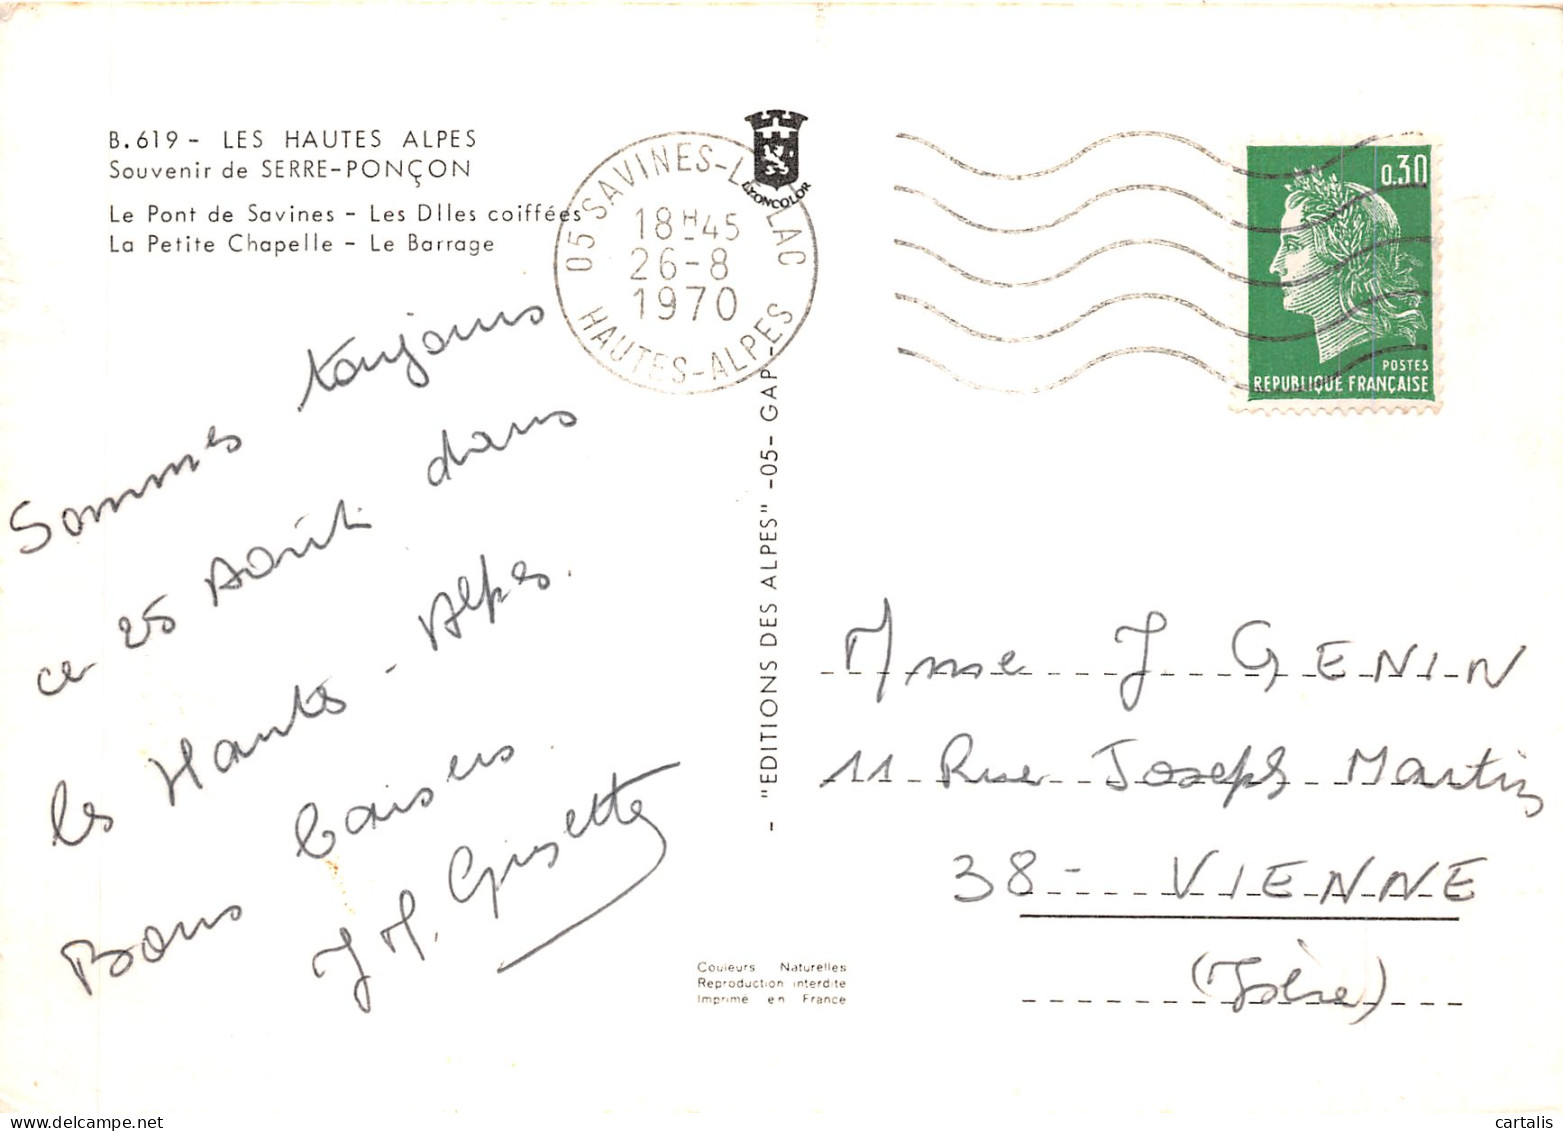 B.619 - LES HAUTES ALPES
Souvenir de SERRE-PONÇON
Le Pont de Savines - Les DIles coiffées
La Petite Chapelle - Le Barrage
LYONCOLOR
05 SAVINES-LE-LAC
18H45
26-8
1970
HAUTES-ALPES
0,30
POSTES
REPUBLIQUE FRANÇAISE
Sommes toujours
ce 25 Août dans
les Hautes-Alpes.
Bons baisers.
J M. Gisette
- "EDITIONS DES ALPES" -05- GAP -
Mme J GENIN
11 Rue Joseph Martin
38 - VIENNE
(Isère)
Couleurs Naturelles
Reproduction interdite
Imprimé en France
cartalis